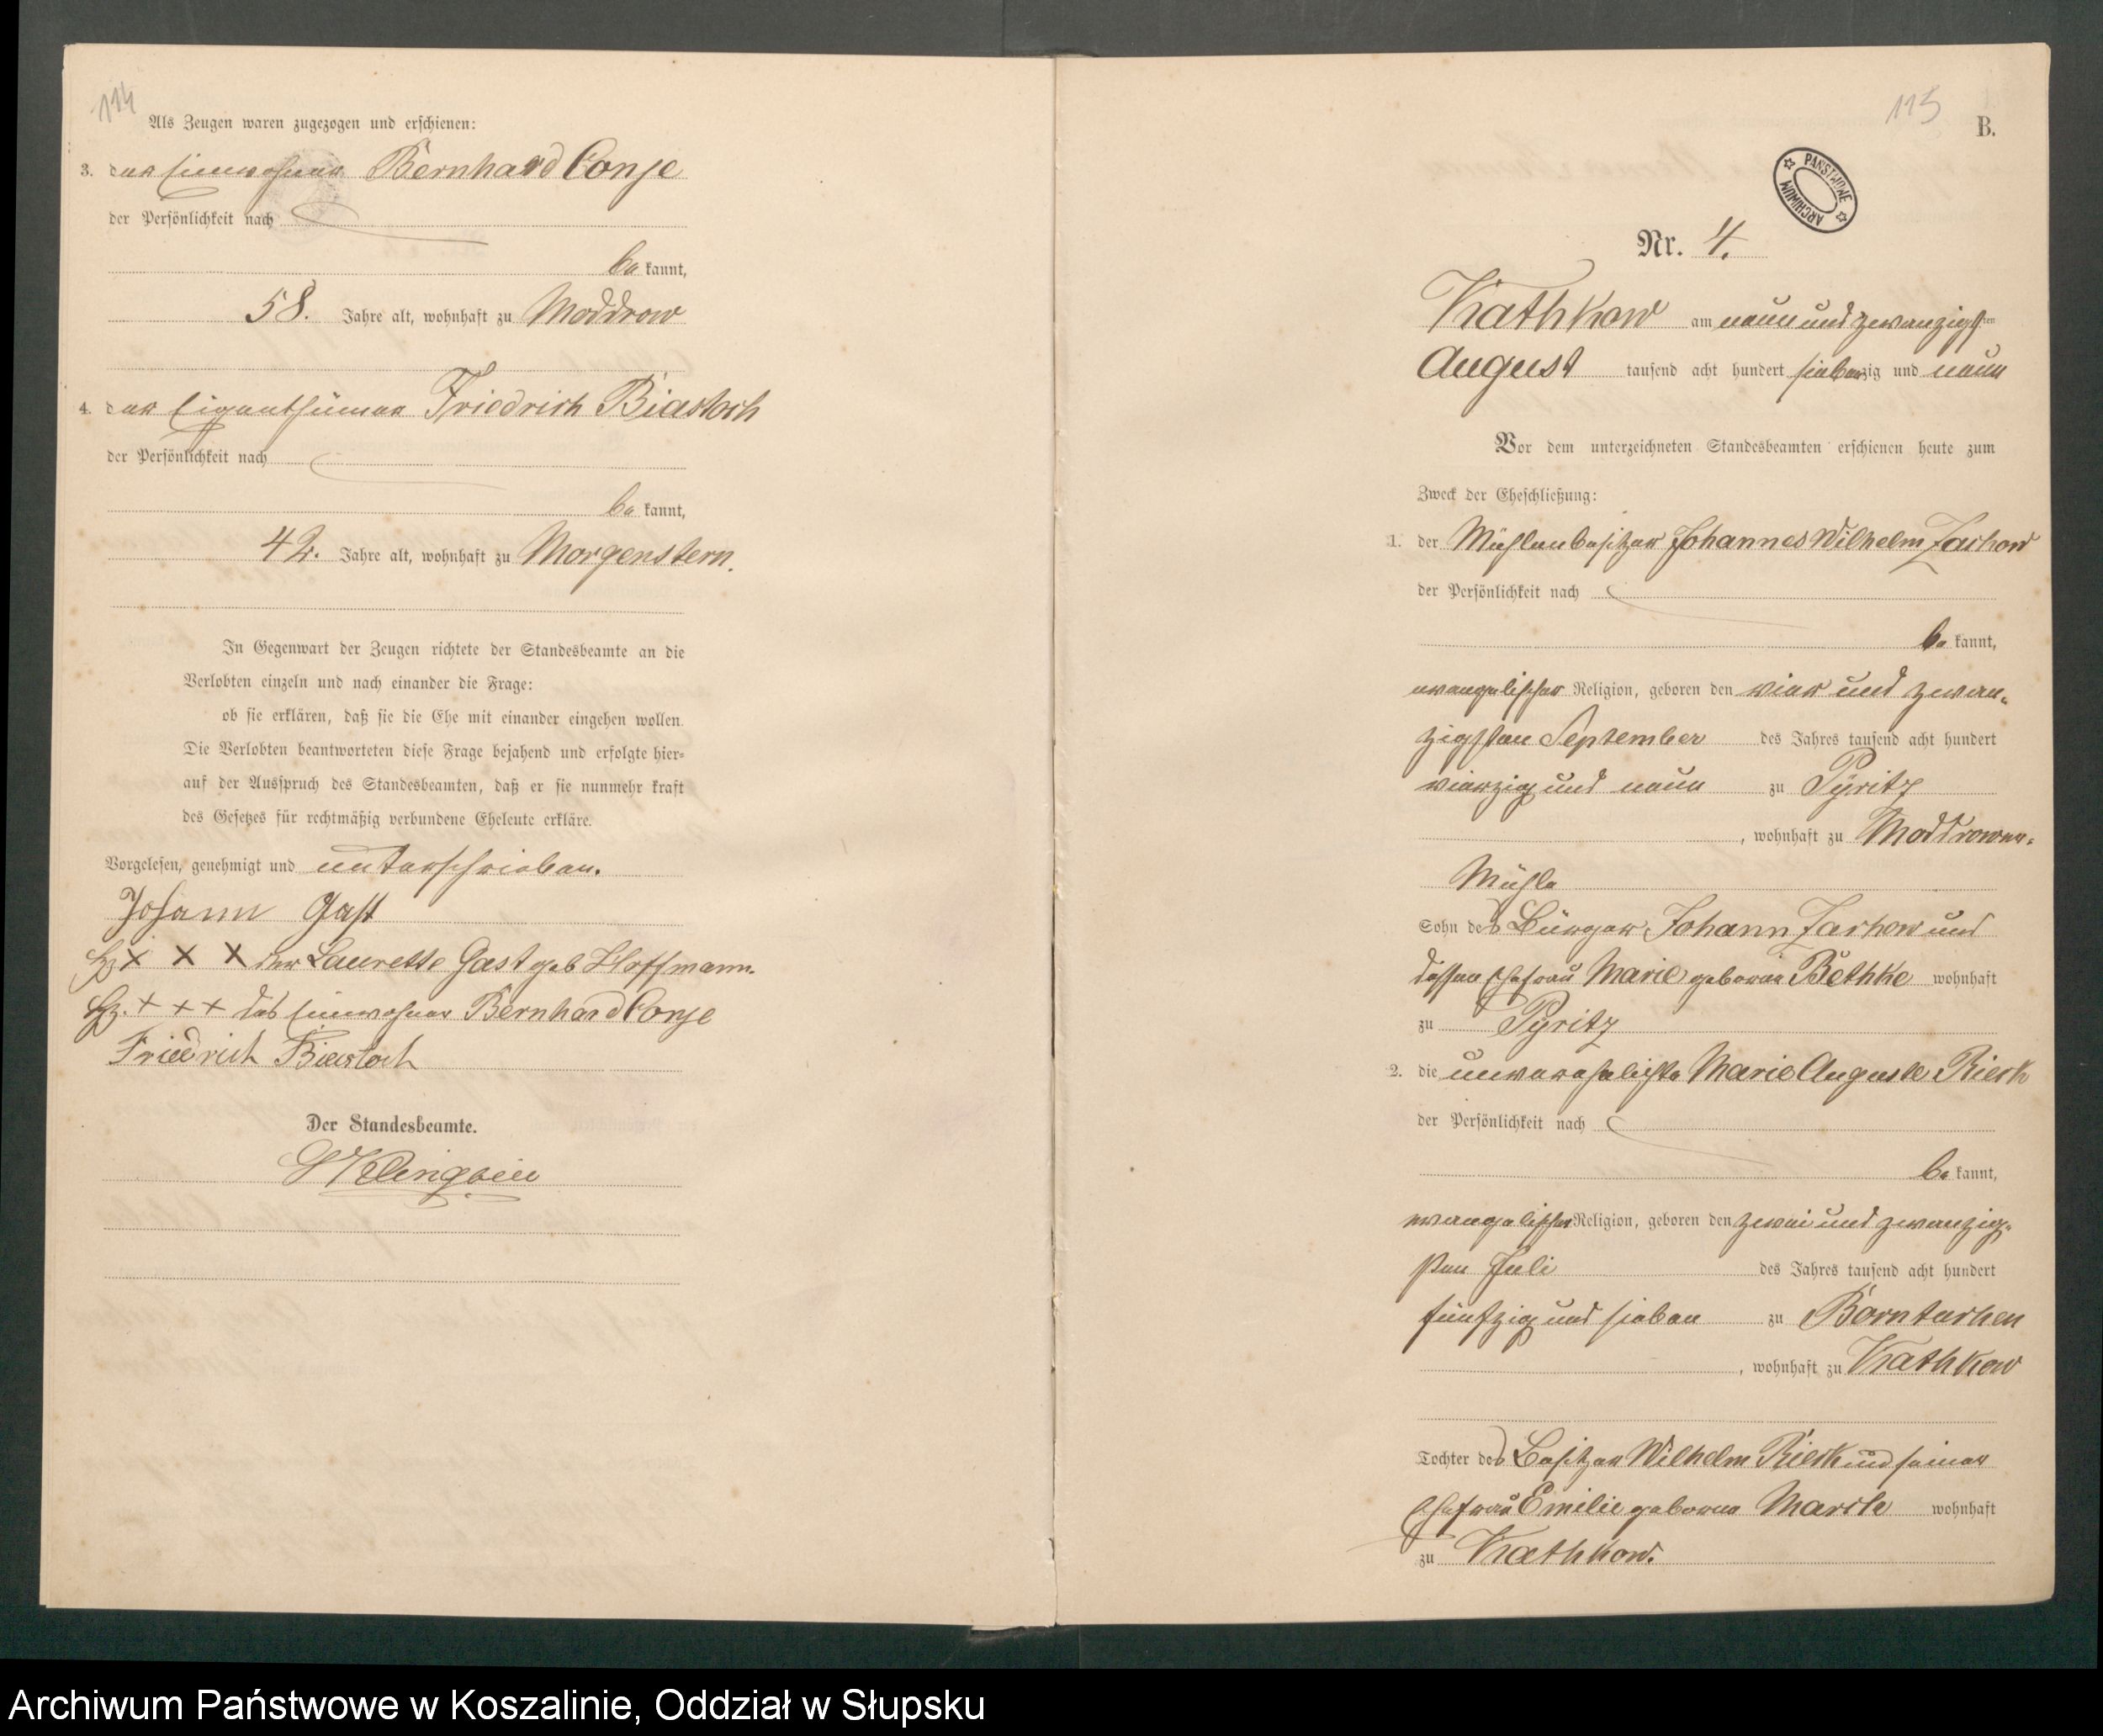 114
Als Zeugen waren zugezogen und erschienen:
3. der Einwohner Bernhard Conje
der Persönlichkeit nach
be kannt,
58. Jahre alt, wohnhaft zu Moddrow
4. der Eigenthümer Friedrich Biastoch
der Persönlichkeit nach
be kannt,
42. Jahre alt, wohnhaft zu Morgenstern.
In Gegenwart der Zeugen richtete der Standesbeamte an die
Verlobten einzeln und nach einander die Frage:
ob sie erklären, daß sie die Ehe mit einander eingehen wollen.
Die Verlobten beantworteten diese Frage bejahend und erfolgte hier=
auf der Ausspruch des Standesbeamten, daß er sie nunmehr kraft
des Gesetzes für rechtmäßig verbundene Eheleute erkläre.
Vorgelesen, genehmigt und unterschrieben.
Johann Gast
Hz X X X der Laurette Gast geb Hoffmann.
Hz. + + + des Einwohner Bernhard Conje
Friedrich Biastoch
Der Standesbeamte.
115
B.
PAŃSTWOWE ARCHIWUM
Nr. 4.
Kathkow am neun und zwanzigsten
August tausend acht hundert siebenzig und neun
Vor dem unterzeichneten Standesbeamten erschienen heute zum
Zweck der Eheschließung:
1. der Mühlenbesitzer Johannes Wilhelm Zachow
der Persönlichkeit nach
be kannt,
evangelischer Religion, geboren den vier und zwan=
zigsten September des Jahres tausend acht hundert
vierzig und neun zu Pyritz
, wohnhaft zu Moddrower=
Mühle
Sohn des Bürger Johann Zachow und
dessen Ehefrau Marie geborne Bethke wohnhaft
zu Pyritz
2. die unverehelichte Marie Auguste Rieck
der Persönlichkeit nach
be kannt,
evangelischer Religion, geboren den zwei und zwanzig=
sten Juli des Jahres tausend acht hundert
fünfzig und sieben zu Borntuchen
, wohnhaft zu Kathkow
Tochter des Besitzer Wilhelm Rieck und seiner
Ehefrau Emilie geborne wohnhaft
zu Kathkow.
Archiwum Państwowe w Koszalinie, Oddział w Słupsku